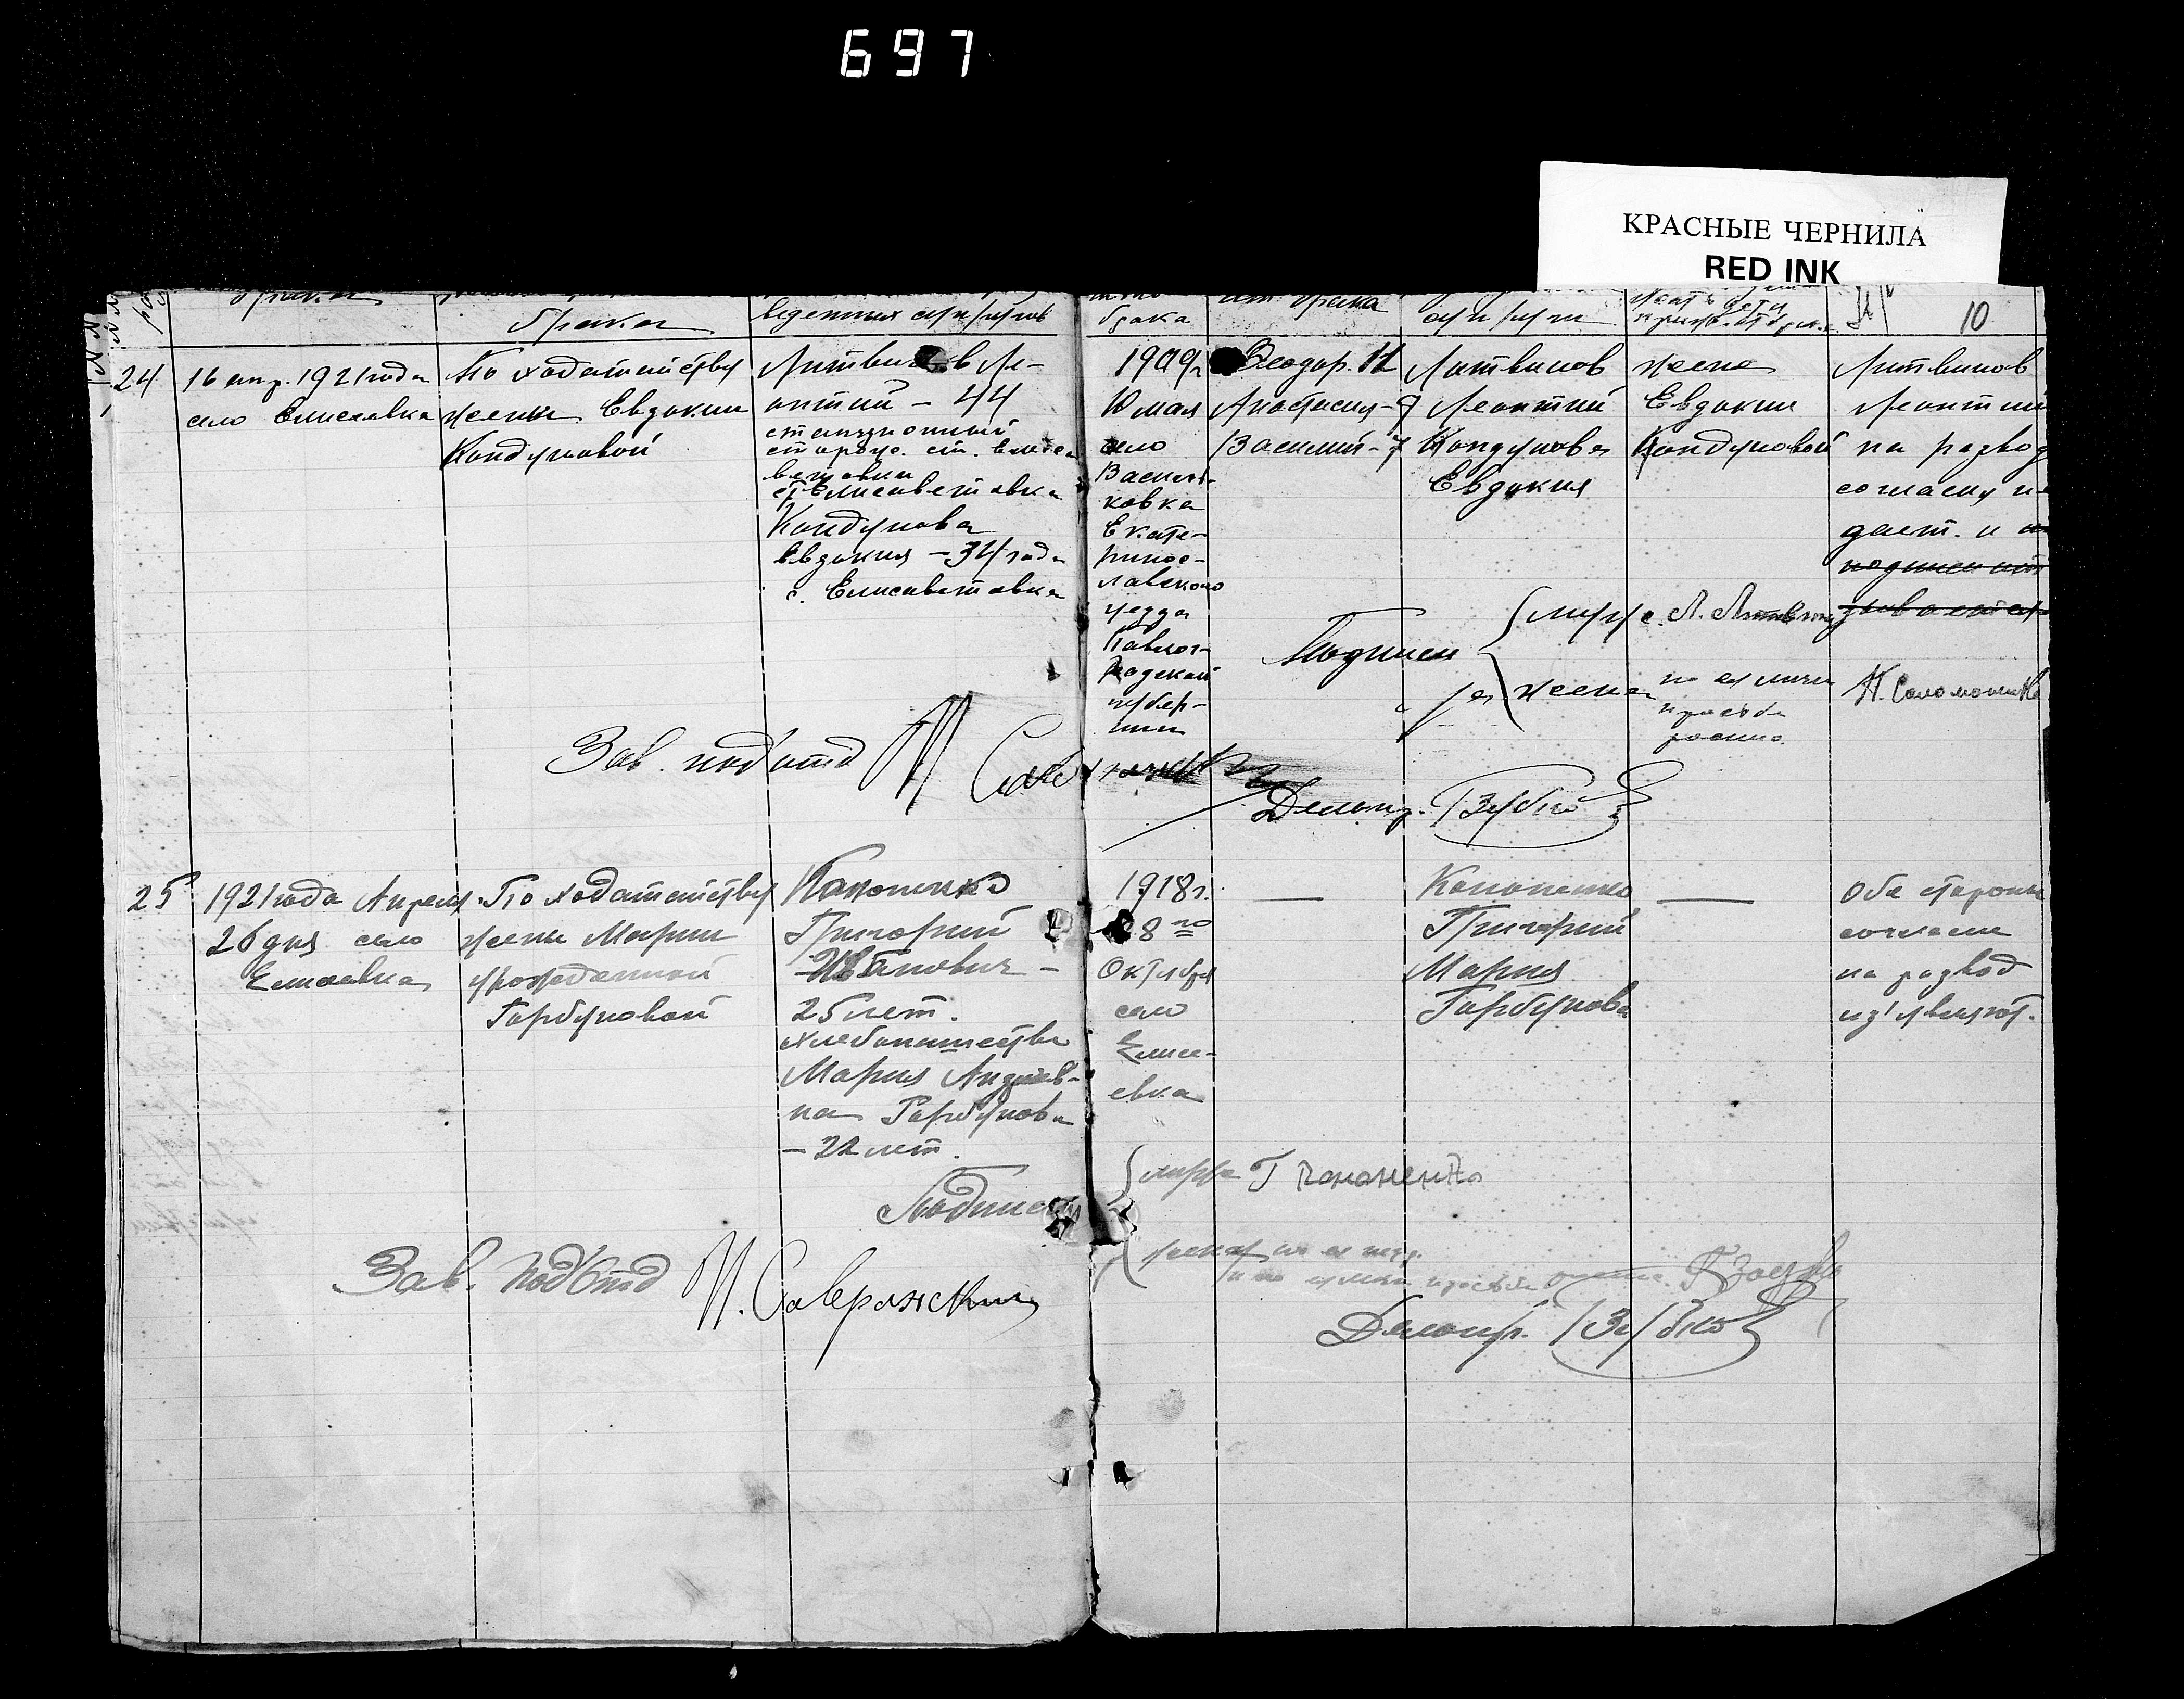 697
КРАСНЫЕ ЧЕРНИЛА
RED INK
брака
брака
веденных супругов
брака
от брака
супруги
дети
10
24
16 апр. 1921 года
село Елисеевка
По ходатайству
жены Евдокии
Кондуковой
Литвинов Ле-
онтий - 44
станционный
сторож. ст. Елиса
ветовка
с. Елисаветовка
Кондукова
Евдокия - 34 года
с. Елисаветовка
1909 г
10 мая
село
Василь-
ковка
Екате-
ринос-
лавского
уезда
Павлог-
радской
губер-
нии
Феодор. 11
Анастасия - 9
Василий - 7
Литвинов
Леонтий
Кондукова
Евдокия
жене
Евдокии
Кондуковой
Литвинов
Леонтий
на развод
согласия не
дает. и
Подписи
муж Л. Литвинов
жена
по ея личн
просьбе
Н. Соломоненко
Зав. подотд
Делопр. Зубко
25
1921 года Апреля
26 дня село
Елисеевка
По ходатайству
жены Марии
урожденной
Горбуновой
Кононенко
Григорий
Иванович -
25 лет.
хлебопашество
Мария Андреев-
на Горбунова
- 22 лет.
1918 г.
28го
Октября
село
Елисе-
евка
—
Кононенко
Григорий
Мария
Горбунова
—
Обе стороны
согласие
на развод
из'являют.
Подписи
муж Г Кононенко
жена по ея
личн просьбе
Зав. подотд И. Савранский
Делопр. Зубко